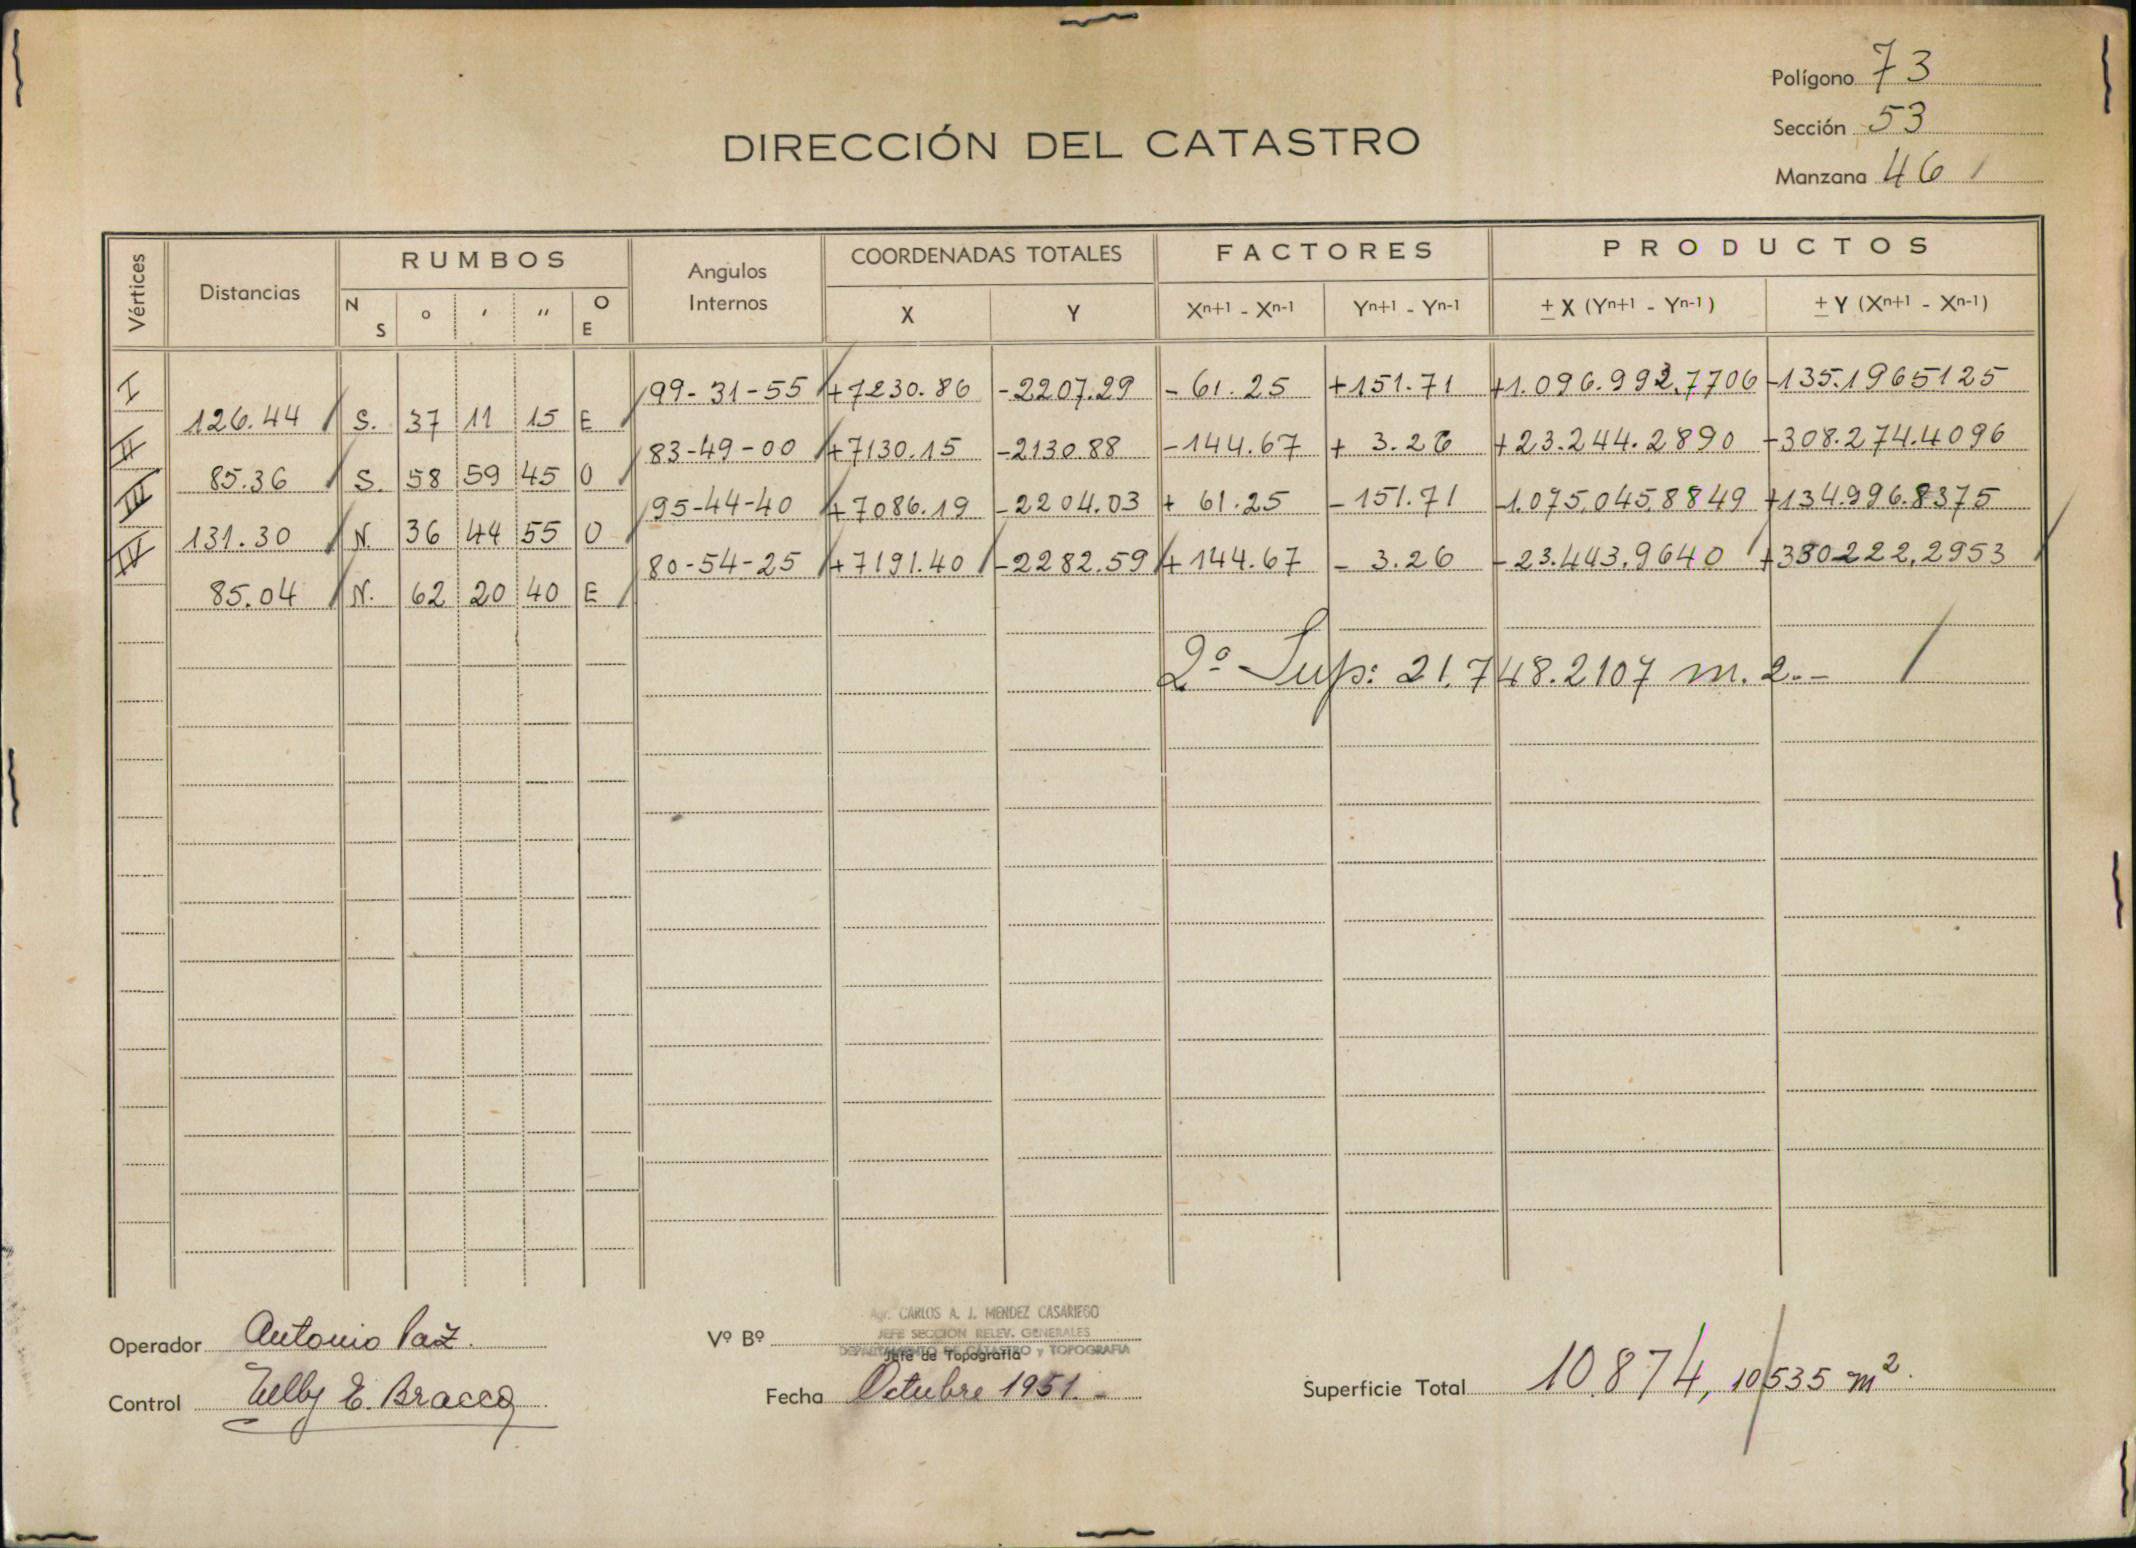 Polígono 73
Sección 53
DIRECCIÓN DEL CATASTRO
Manzana 46
Vértices Distancias RUMBOS Angulos Internos COORDENADAS TOTALES FACTORES PRODUCTOS
N S ° ' " O E X Y Xn+1 - Xn-1 Yn+1 - Yn-1 ± X (Yn+1 - Yn-1) ± Y (Xn+1 - Xn-1)
I 99-31-55 +7230.86 -2207.29 - 61.25 +151.71 +1.096.992,7706 -135.1965125
126.44 S. 37 11 15 E
II 83-49-00 +7130.15 -2130.88 -144.67 + 3.26 +23.244.2890 +308.274.4096
85.36 S. 58 59 45 O
III 95-44-40 +7086.19 -2204.03 + 61.25 - 151.71 -1.075,045,8849 +134.996.8375
131.30 N. 36 44 55 O
IV 80-54-25 +7191.40 -2282.59 +144.67 - 3.26 -23.443,9640 +330222,2953
85.04 N. 62 20 40 E
2º Sup: 21.748.2107 m.2.-
Operador Antonio Paz.
Vº Bº
Agr. CARLOS A. J. MENDEZ CASARIEGO
JEFE SECCION RELEV. GENERALES
DEPARTAMENTO DE CATASTRO y TOPOGRAFIA
Jefe de Topografía
Control E. Bracco
Fecha Octubre 1951.-
Superficie Total 10.874,10535 m2.